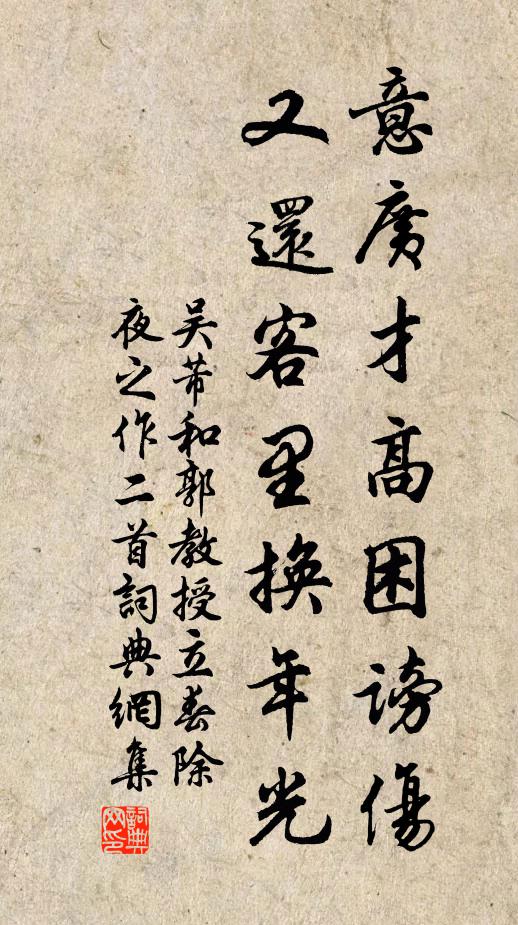 意廣才高困謗傷
又還客里換年光
吴芾和郭教授立春除
夜之作二首詞典網集
詞典
网印